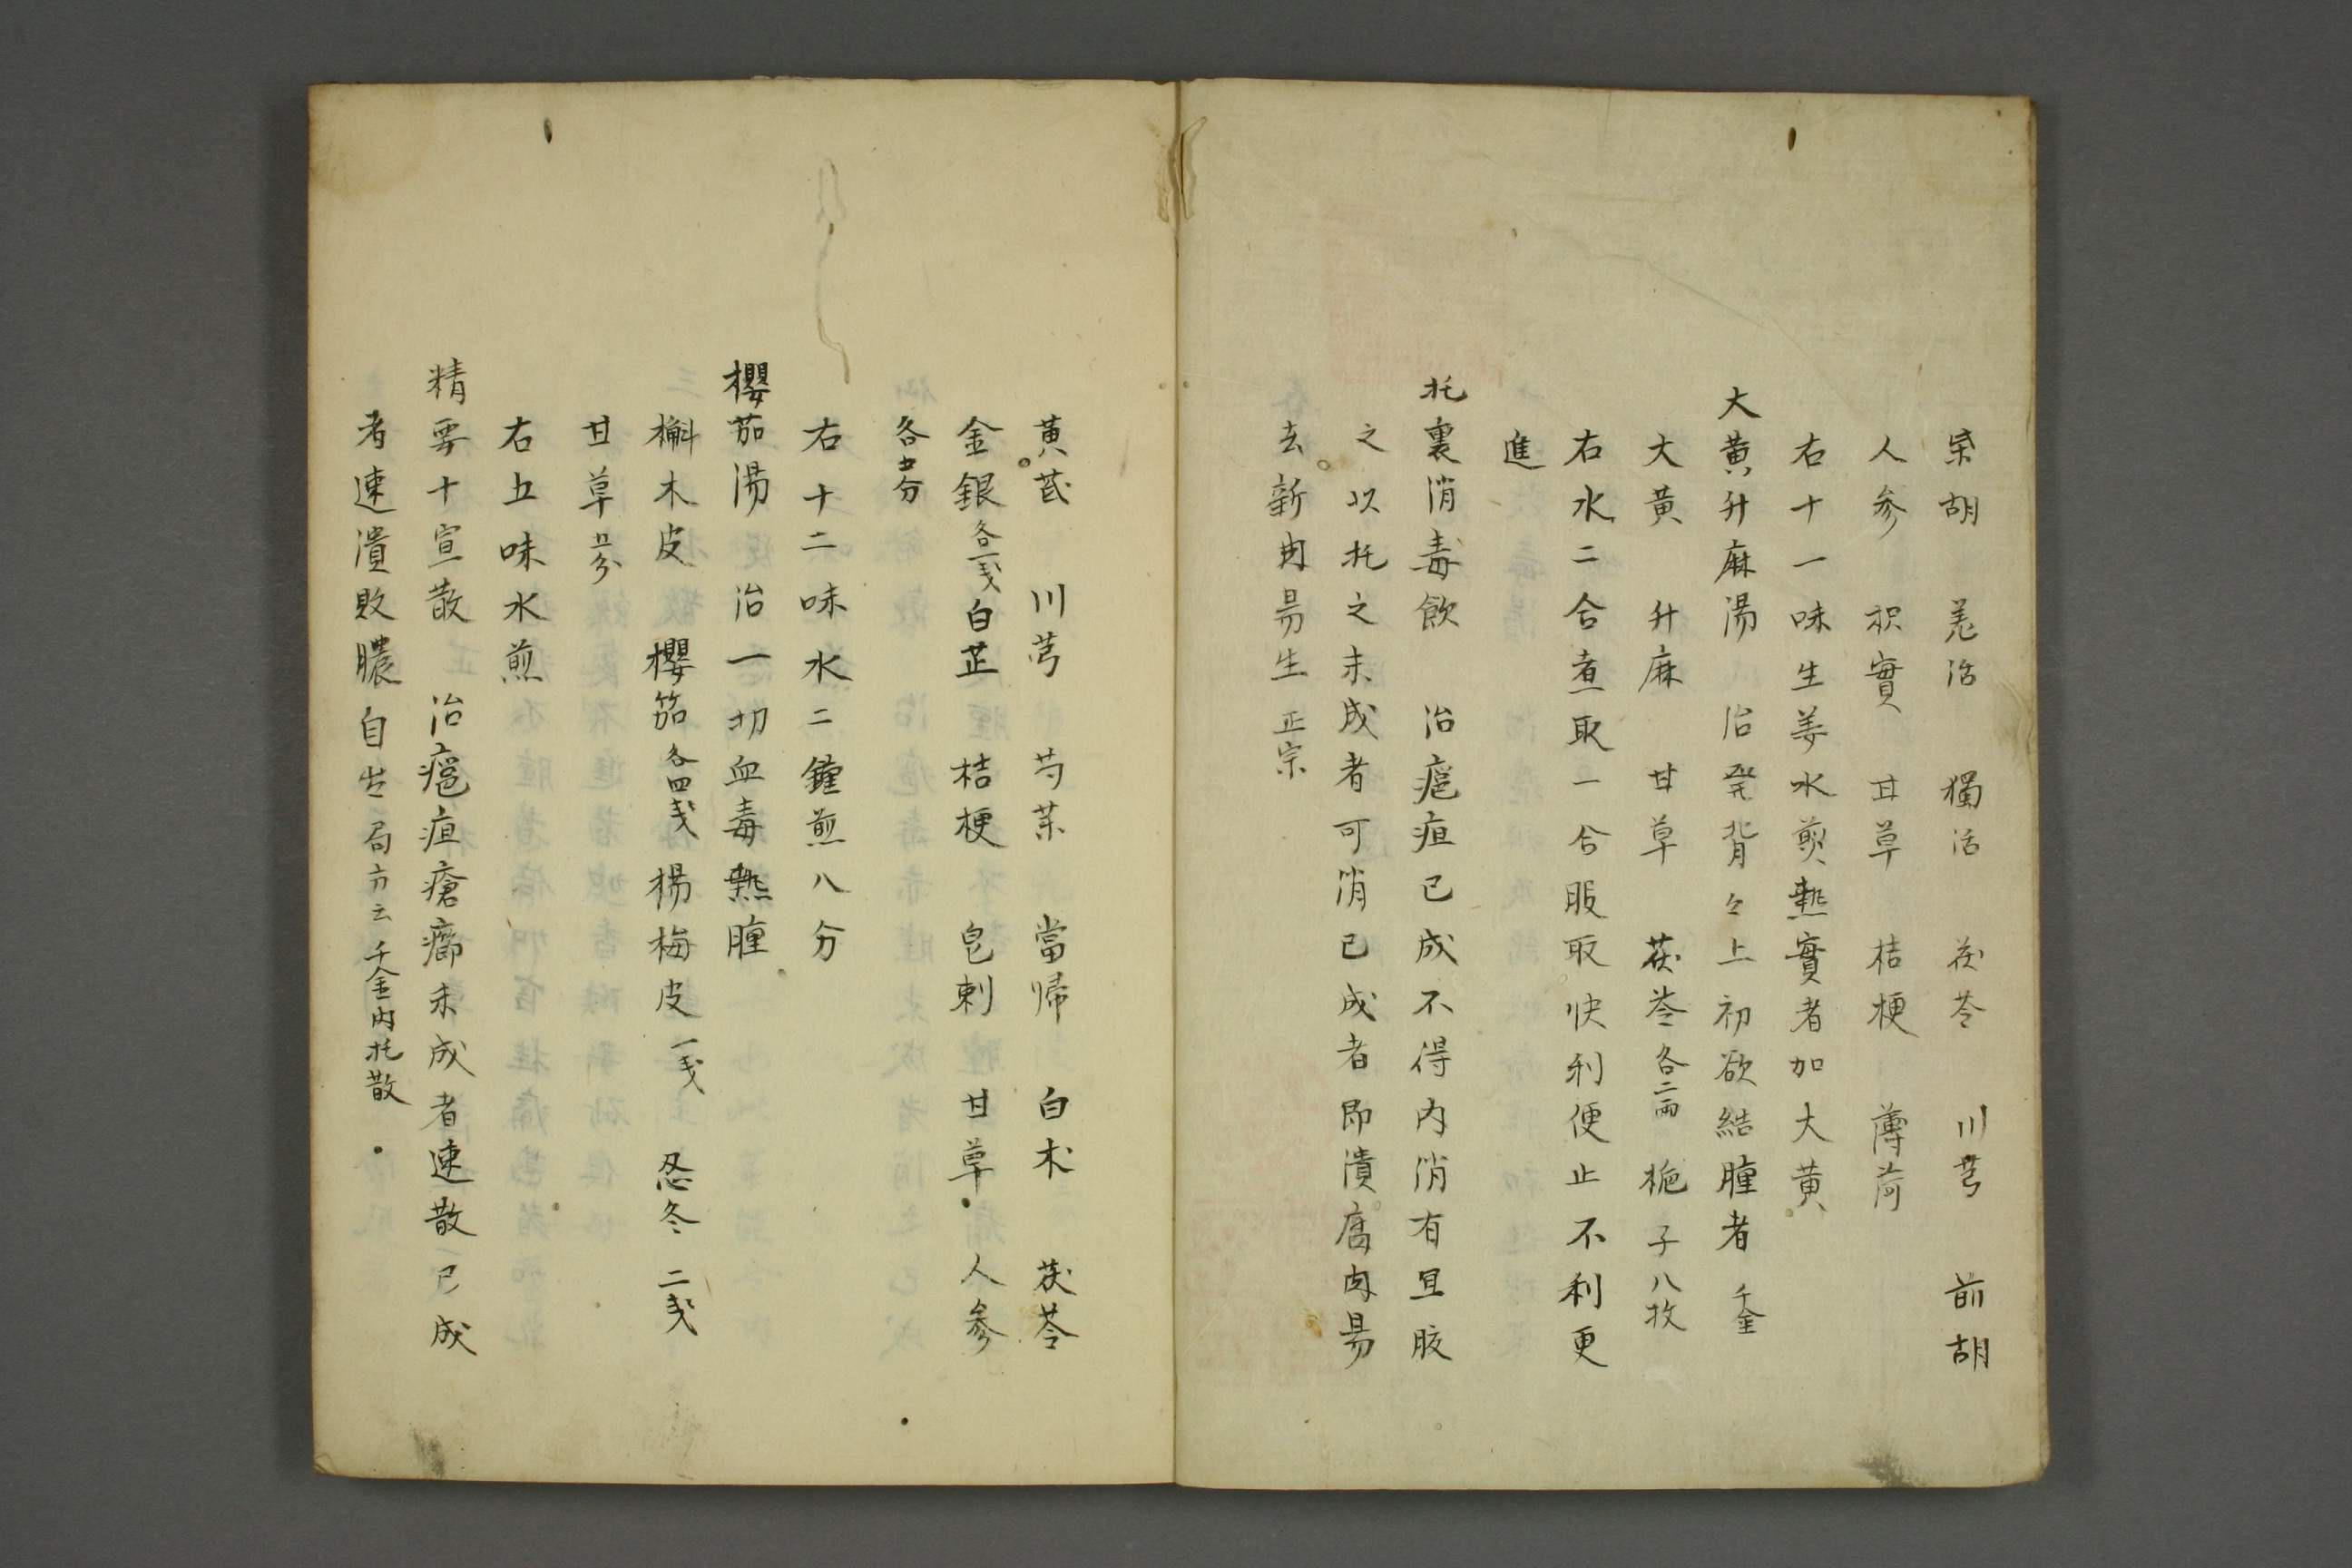 柴胡 羌活 獨活 茯苓 川芎 前胡
人参 枳實 甘草 桔梗 薄荷
右十一味生姜水煎熱實者加大黄
大黄升麻湯 治発背々上初欲結腫者 千金
大黄 升麻 甘草 茯苓各二両 梔子八枚
右水二合煮取一合服取快利便止不利更
進
托裏消毒飲 治癰疽已成不得内消有且服
之以托之未成者可消已成者即潰腐肉易
去新肉易生 正宗
黄芪 川芎 芍薬 當帰 白朮 茯苓
金銀各一戔 白芷 桔梗 皂刺 甘草 人参
各五分
右十二味水二鍾煎八分
櫻茹湯 治一切血毒熱腫
槲木皮 櫻筎各四戔 楊梅皮一戔 忍冬二戔
甘草五分
右五味水煎
精要十宣散 治癰疽瘡癤未成者速散已成
者速潰敗膿自出 局方云千金内托散